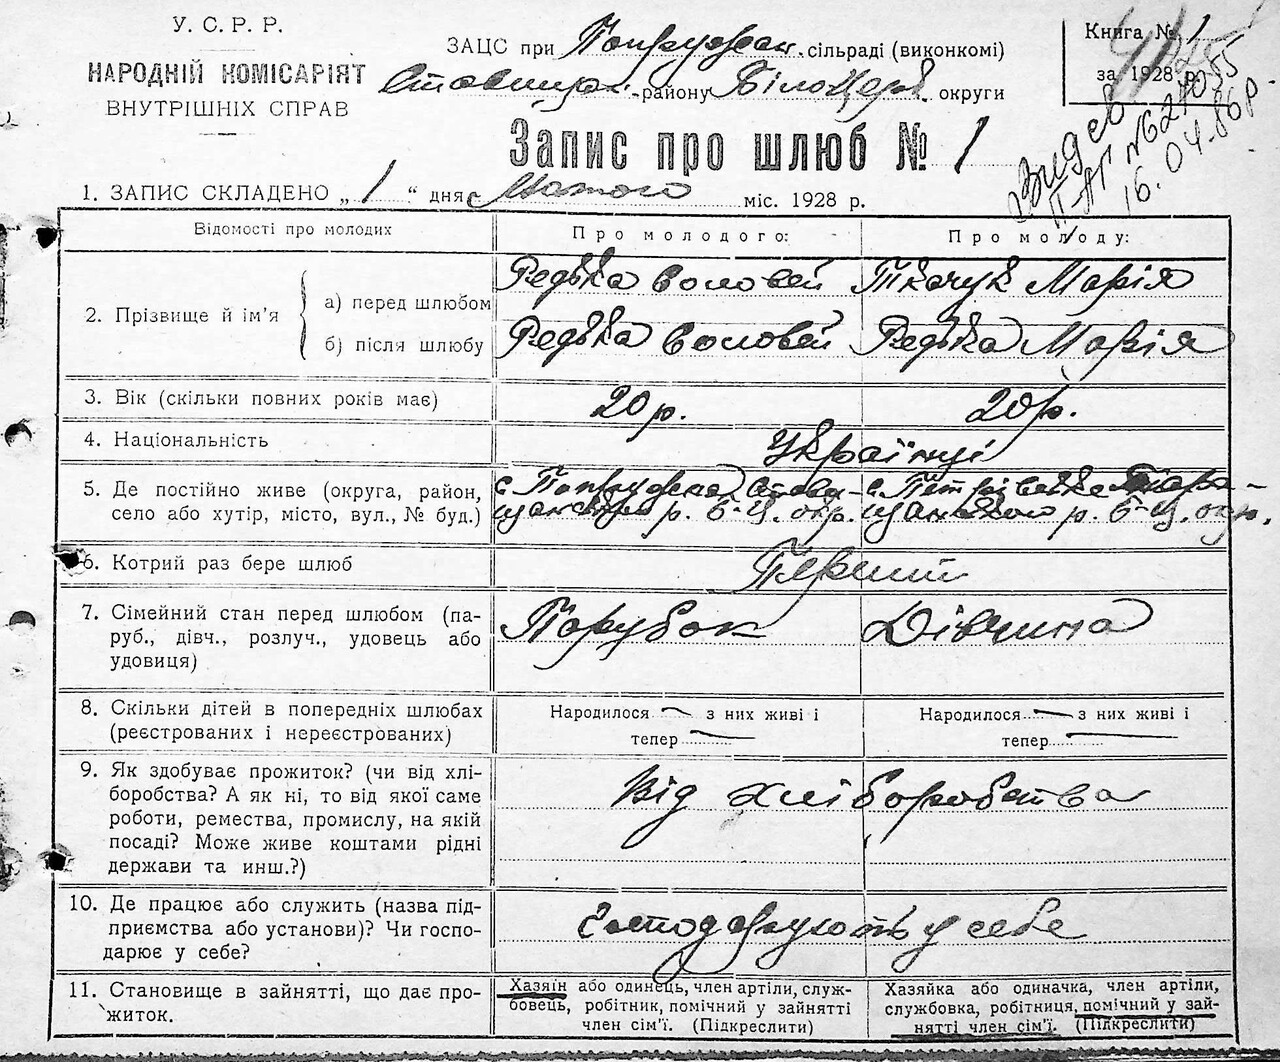 У. С. Р. Р.
НАРОДНІЙ КОМІСАРІЯТ
ВНУТРІШНІХ СПРАВ
ЗАЦС при Попружан. сільраді (виконкомі)
Ставищан. району Білоцерк. округи
Книга № 1
за 1928 р.
Запис про шлюб № 1
Видев
16.04.86р.
1. ЗАПИС СКЛАДЕНО „1“ дня Лютого міс. 1928 р.
Відомості про молодих
Про молодого:
Про молоду:
2. Прізвище й ім’я
а) перед шлюбом
Редька Соловей
Ткачук Марія
б) після шлюбу
Редька Соловей
Редька Марія
3. Вік (скільки повних років має)
20 р.
20 р.
4. Національність
Українці
5. Де постійно живе (округа, район,
село або хутір, місто, вул., № буд.)
с. Попружна Стави-
щанськ р. Б-Ц. окр.
с. Петрівка
щанського р. Б-Ц. окр.
6. Котрий раз бере шлюб
Перший
7. Сімейний стан перед шлюбом (па-
руб., дівч., розлуч., удовець або
удовиця)
Парубок
Дівчина
8. Скільки дітей в попередніх шлюбах
(реєстрованих і нереєстрованих)
Народилося — з них живі і
тепер —
Народилося — з них живі і
тепер —
9. Як здобуває прожиток? (чи від хлі-
боробства? А як ні, то від якої саме
роботи, ремества, промислу, на якій
посаді? Може живе коштами рідні
держави та инш.?)
Від хліборобства
10. Де працює або служить (назва під-
приємства або установи)? Чи госпо-
дарює у себе?
Господарюють у себе
11. Становище в зайнятті, що дає про-
житок.
Хазяїн або одинець, член артілі, служ-
бовець, робітник, помічний у зайнятті
член сім’ї. (Підкреслити)
Хазяйка або одиначка, член артіли,
службовка, робітниця, помічний у зай-
нятті член сім’ї. (Підкреслити)